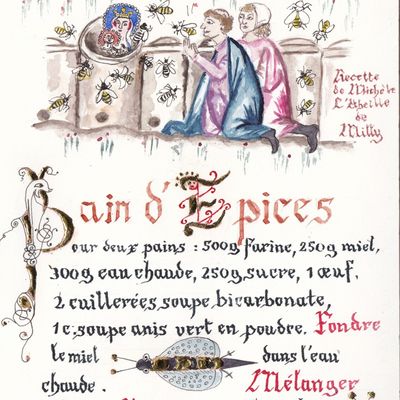 Recette
de Michèle
L'Abeille
de
Milly
Pain d'Epices
Pour deux pains : 500g farine, 250g miel,
300g eau chaude, 250g sucre, 1 œuf,
2 cuillerées soupe bicarbonate,
1 c. soupe anis vert en poudre. Fondre
le miel dans l'eau
chaude. Mélanger